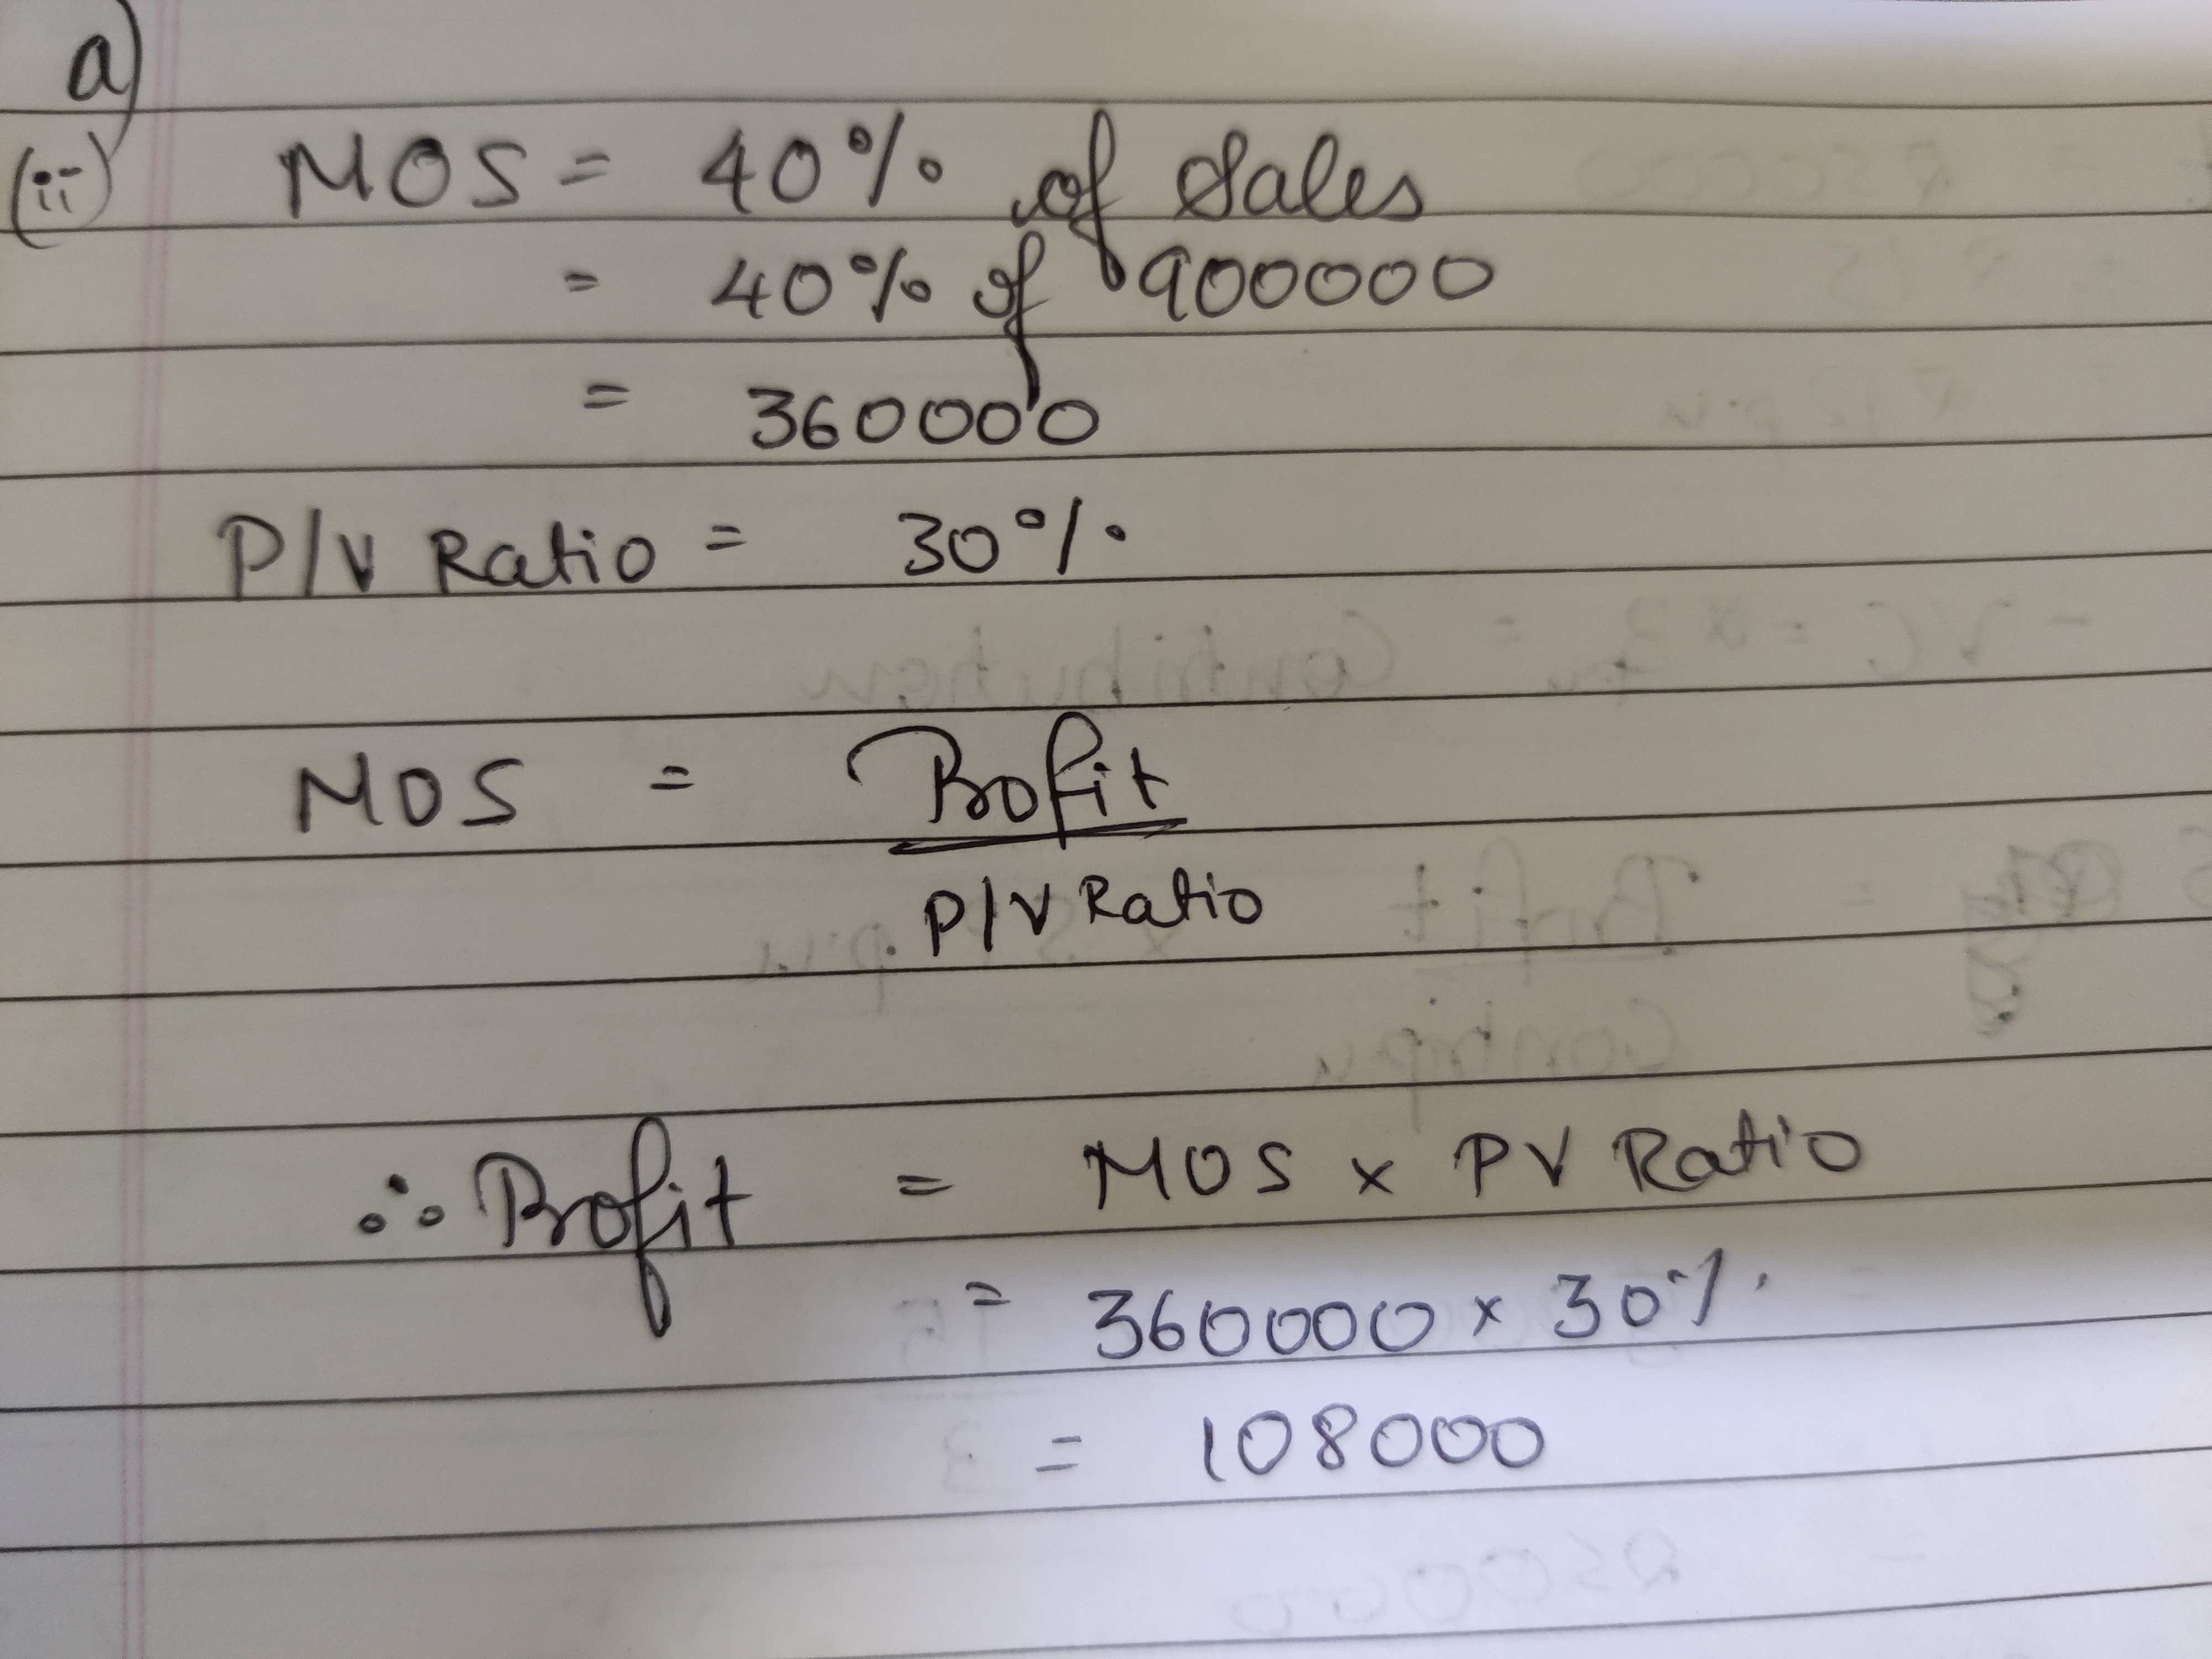 a)
(ii) MOS = 40% of Sales
= 40% of 900000
= 360000
P/V Ratio = 30%
MOS = Profit
P/V Ratio
∴ Profit = MOS x PV Ratio
= 360000 x 30%
= 108000